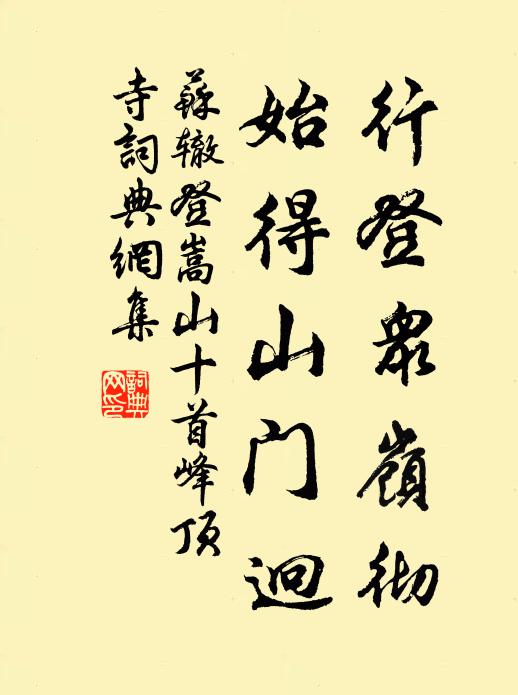 行登眾嶺彻
始得山门迥
蘇辙登嵩山十首峰顶
寺詞典網集
詞典
网印